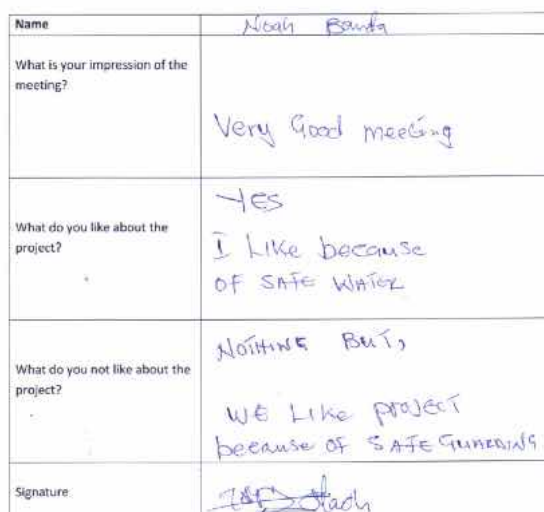 Name Noah Banda
What is your impression of the
meeting?
Very Good meeting
What do you like about the
project?
YES
I Like because
OF SAFE WATER
What do you not like about the
project?
NOTHING BUT,
WE LIKE PROJECT
because OF SAFE GUARDING
Signature